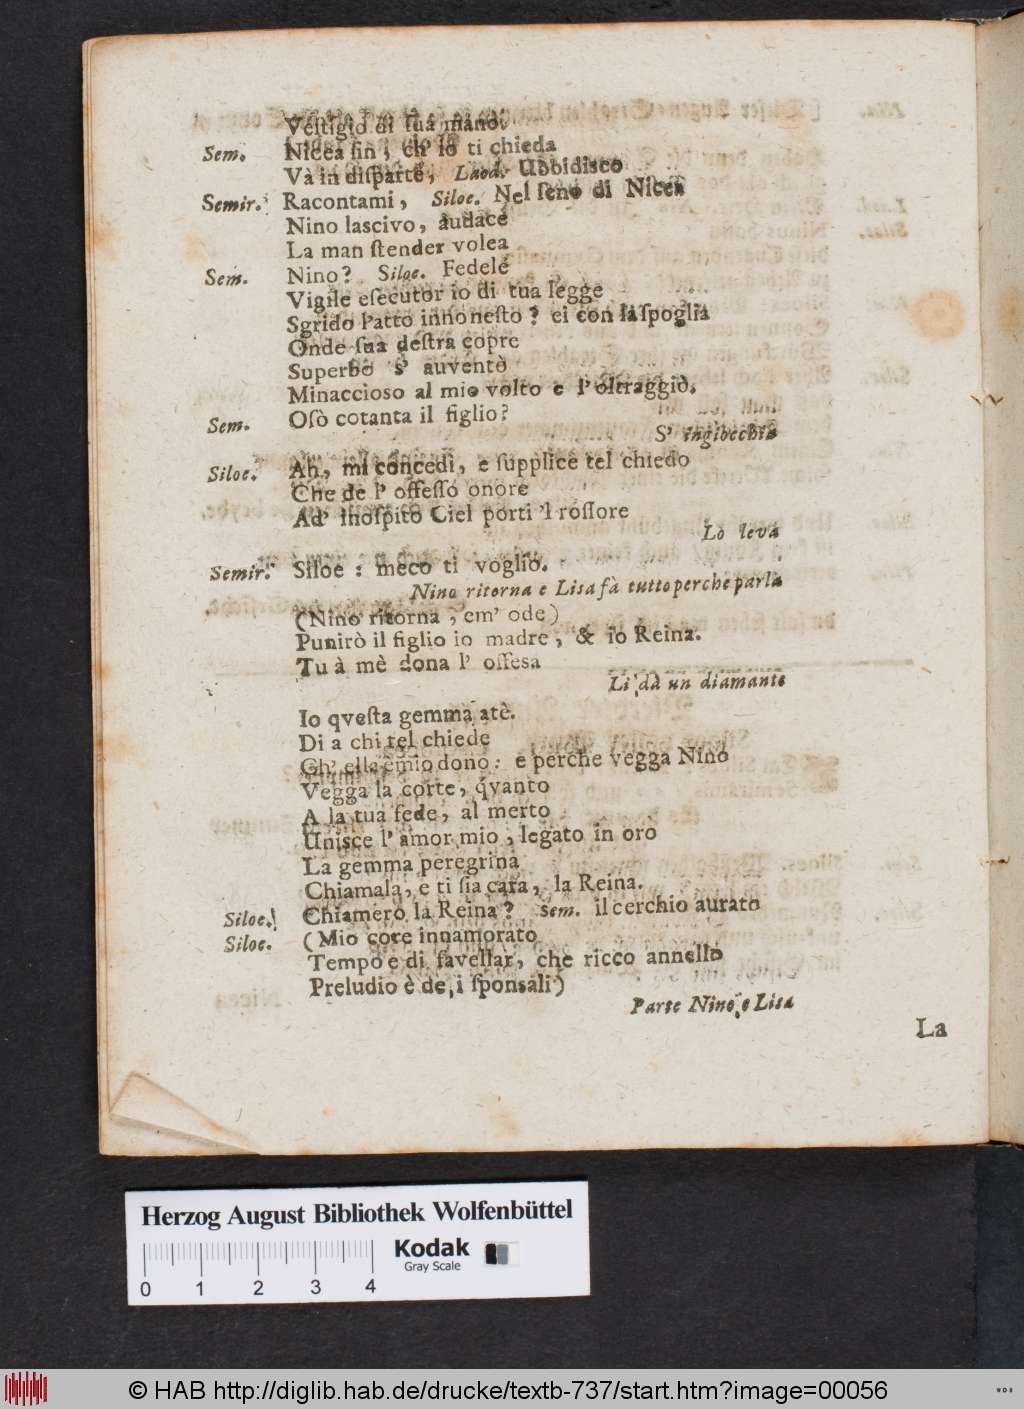 Vestigio di sua mano.
Sem. Nicea sin, ch' io ti chieda
Và in disparte, Laod. Ubbidisco
Semir. Racontami, Siloe. Nel seno di Nicea
Nino lascivo, audace
La man stender volea
Sem. Nino? Siloe. Fedele
Vigile esecutor io di tua legge
Sgrido l'atto innonesto? ei con la spoglia
Onde sua destra copre
Superbo s' auventò
Minaccioso al mio volto e l' oltraggiò.
Sem. Osò cotanta il figlio?
S' ingioechia
Siloe. Ah, mi concedi, e supplice tel chiedo
Che de l' offesso onore
Ad' inospito Ciel porti 'l rossore
Lo leva
Semir. Siloe: meco ti voglio.
Nino ritorna e Lisa fà tutto perche parla
(Nino ritorna, em' ode)
Punirò il figlio io madre, & io Reina.
Tu à mè dona l' offesa
Li dà un diamante
Io qvesta gemma atè.
Di a chi tel chiede
Ch' ella è mio dono: e perche vegga Nino
Vegga la corte, qvanto
A la tua fede, al merto
Unisce l' amor mio, legato in orò
La gemma peregrina
Chiamala, e ti sia cara, la Reina.
Siloe. Chiamerò la Reina? Sem. il cerchio aurato
Siloe. (Mio core innamorato
Tempo e di favellar, che ricco annello
Preludio è de i sponsali)
Parte Nino e Lisa
La
Herzog August Bibliothek Wolfenbüttel
Kodak
Gray Scale
0 1 2 3 4
© HAB http://diglib.hab.de/drucke/textb-737/start.htm?image=00056